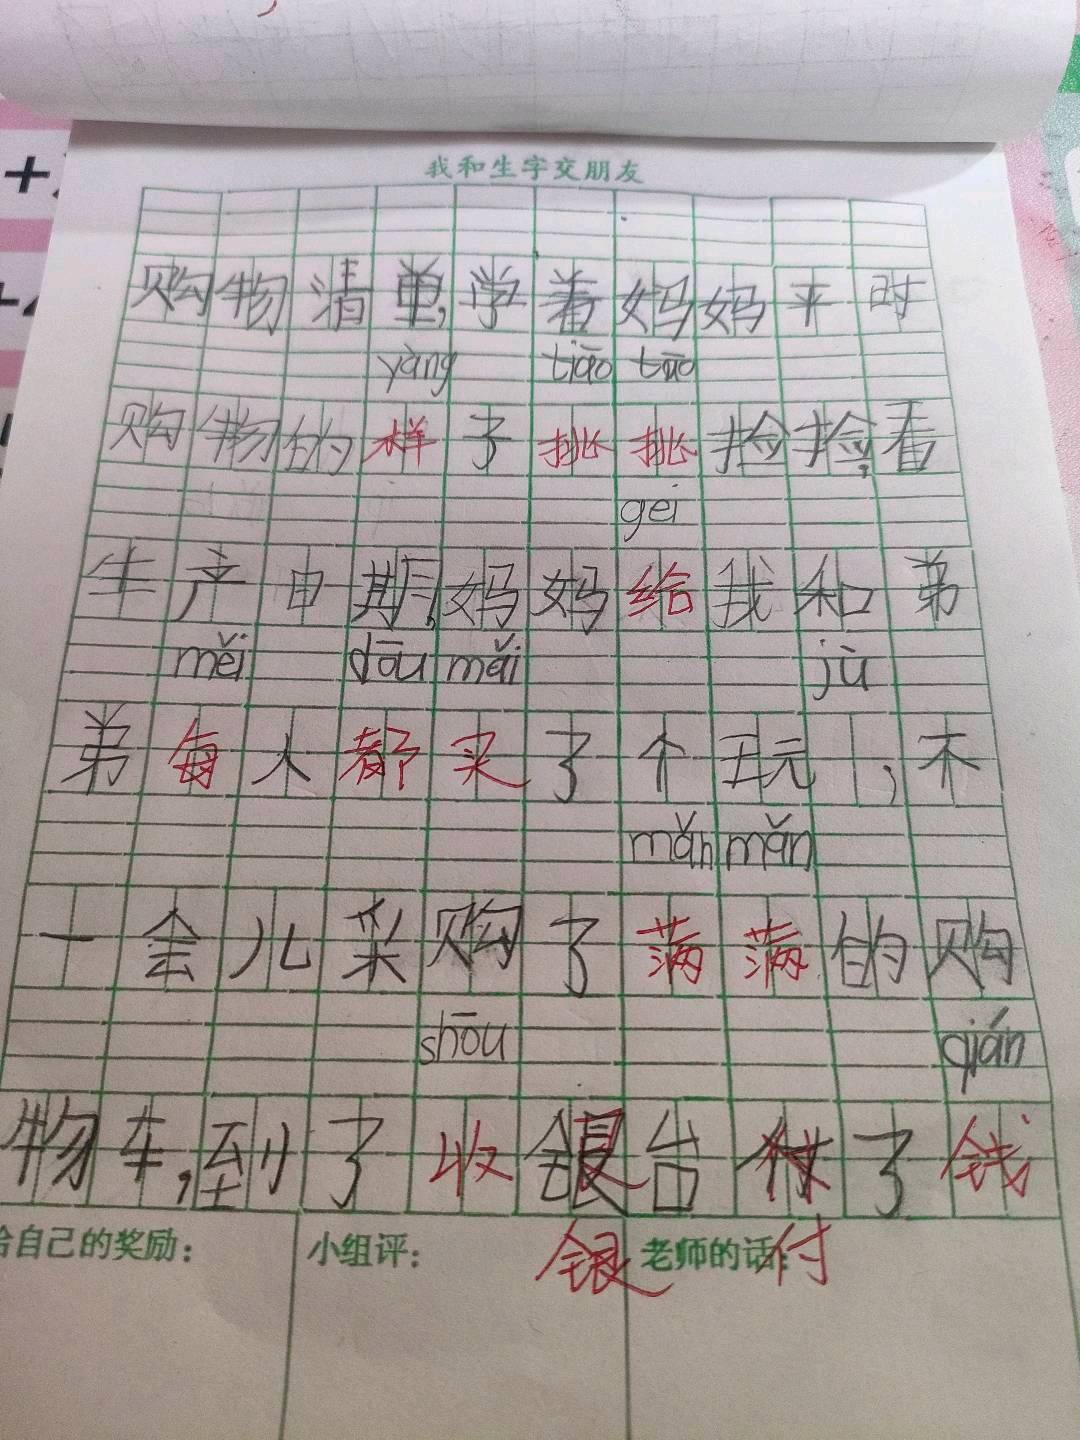 我和生字交朋友
购物清单,学着妈妈平时
yàng tiāo tāo
购物的样子挑挑捡捡,看
gei
生产日期,妈妈给我和弟
měi dōu mǎi jù
弟每人都买了个玩元,不
mǎn mǎn
一会儿采购了满满的购
shōu qián
物车,到了收银台付了钱
银 付
给自己的奖励: 小组评: 老师的话: